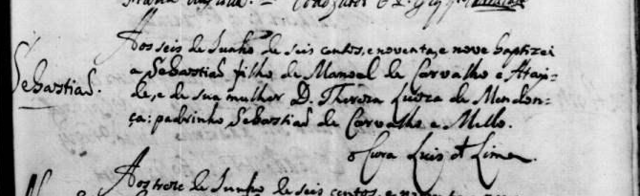 Sebastiaõ.
Aos seis de Junho de seis centos, e noventa, e nove baptizei
a Sebastiaõ filho de Manoel de Carvalho e Ataji-
de, e de sua mulher D. Thereza Luiza de Mendon-
ça: padrinho Sebastiaõ de Carvalho e Mello.
o Cura Luis de Lima.
Aos treze de Junho de seis centos, e noventa